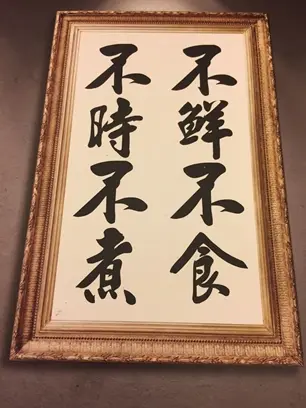 不鮮不食
不時不煮